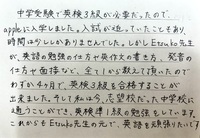 中学受験で英検3級が必要だったので、
appleに入学しました。入試が迫っていたこともあり、
時間は少ししかありませんでした。しかしEtsuko先生
が、英語の勉強の仕方や英作文の書き方、発音の
仕方や面接など、全て1から教えて頂いたので
わずか4ヶ月で、英検3級を合格することが
出来ました。そして私は今、志望校だった中学校に
通うことができ、英検準1級の勉強をしています。
これからもEtsuko先生の元で、英語を頑張りたいです